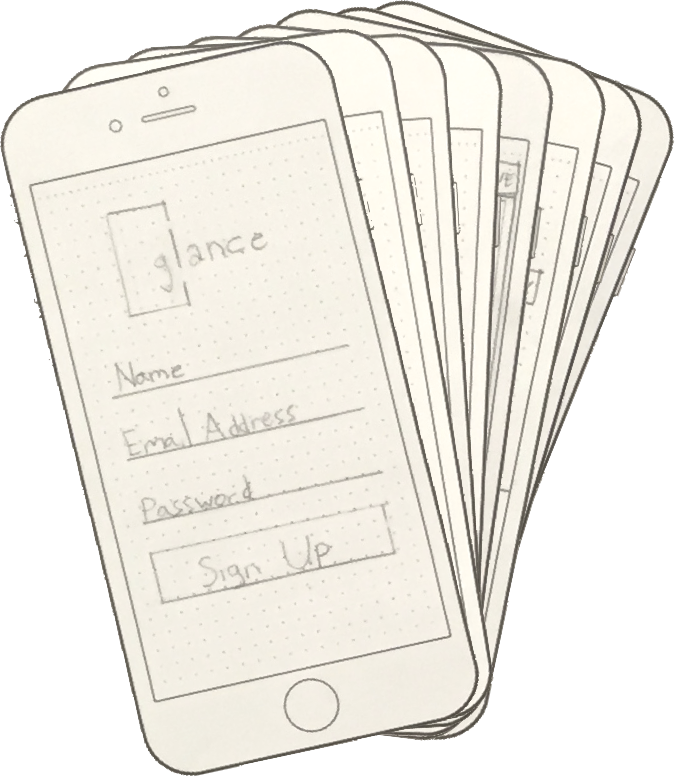 glance
Name
Email Address
Password
Sign Up